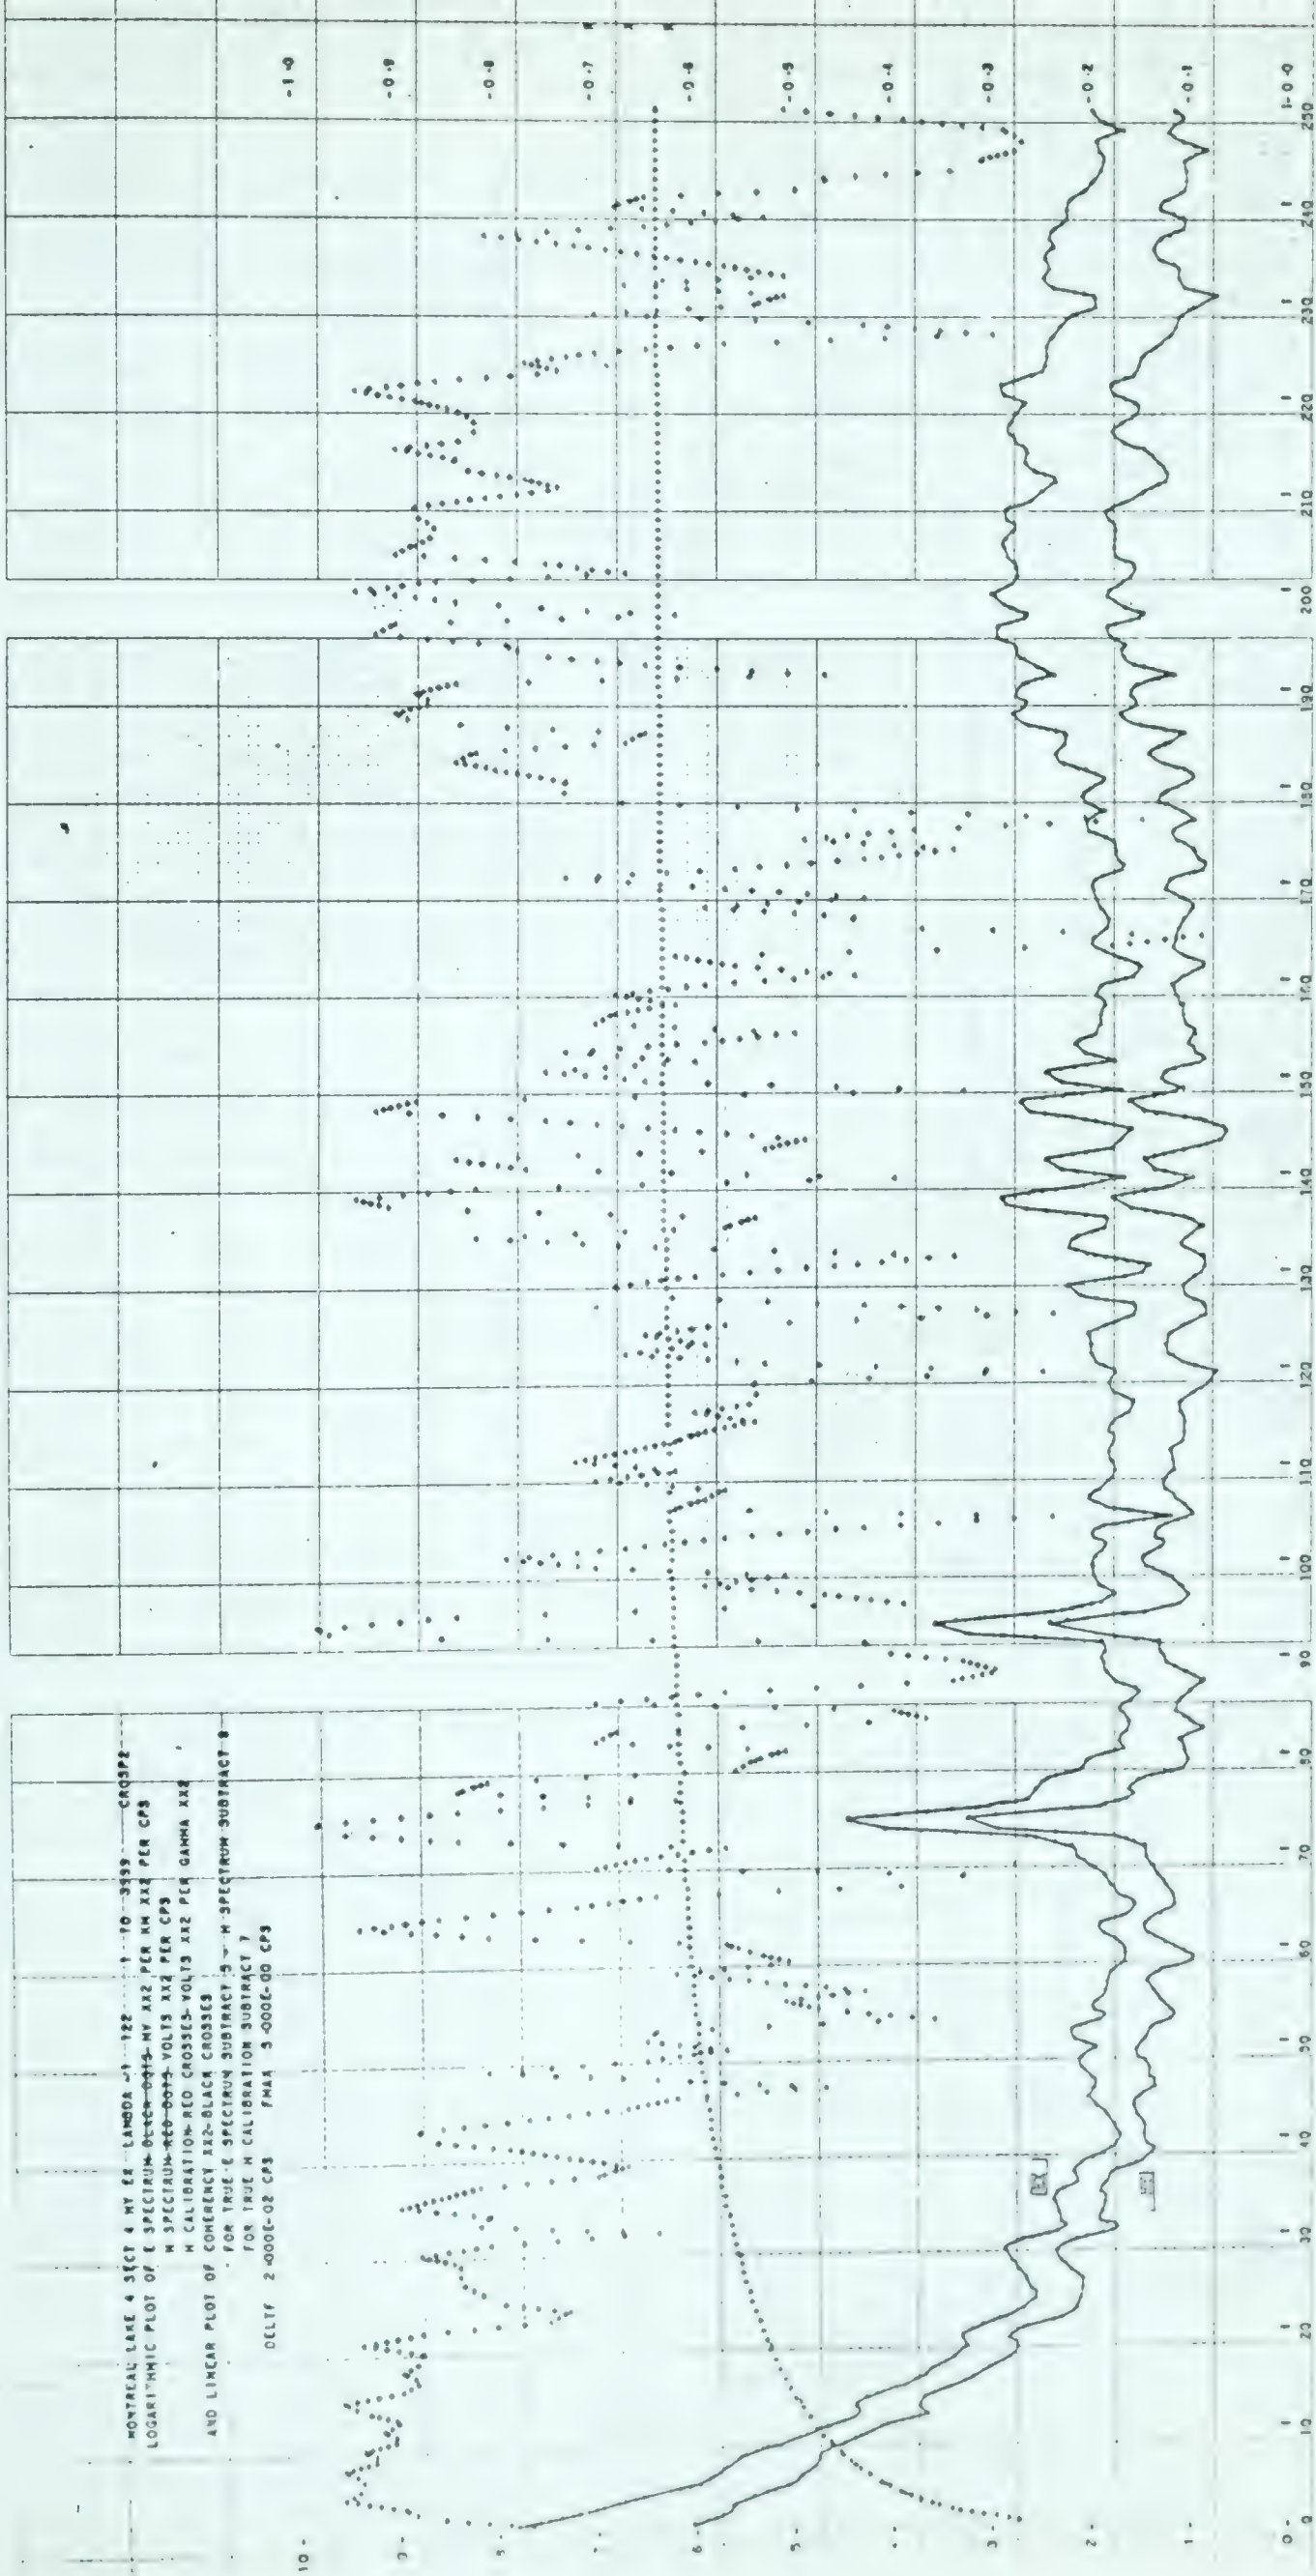 MONTREAL LAKE 4 SECT 4 HY EX LAMBDA -1 722 1 TO 3999 CROSP2
LOGARITHMIC PLOT OF E SPECTRUM BLACK DOTS MV XX2 PER KM XX2 PER CPS
H SPECTRUM RED DOTS VOLTS XX2 PER CPS
H CALIBRATION-RED CROSSES-VOLTS XX2 PER GAMMA XX2
AND LINEAR PLOT OF COHERENCY XX2-BLACK CROSSES
FOR TRUE E SPECTRUM SUBTRACT 5 - H SPECTRUM SUBTRACT 8
FOR TRUE H CALIBRATION SUBTRACT 7
DELTF 2.000E-02 CPS FMAX 5.000E-00 CPS
10-
9-
8-
7-
6-
5-
4-
3-
2-
1-
0-
-1.0
-0.9
-0.8
-0.7
-0.6
-0.5
-0.4
-0.3
-0.2
-0.1
-0.0
EX
0 10 20 30 40 50 60 70 80 90 100 110 120 130 140 150 160 170 180 190 200 210 220 230 240 250